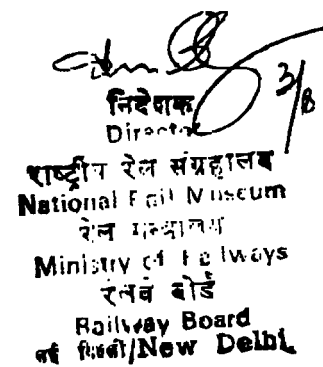 3/8
निदेशक
Director
राष्ट्रीय रेल संग्रहालय
National Rail Museum
रेल मन्त्रालय
Ministry of Railways
रेलवे बोर्ड
Railway Board
नई दिल्ली/New Delhi